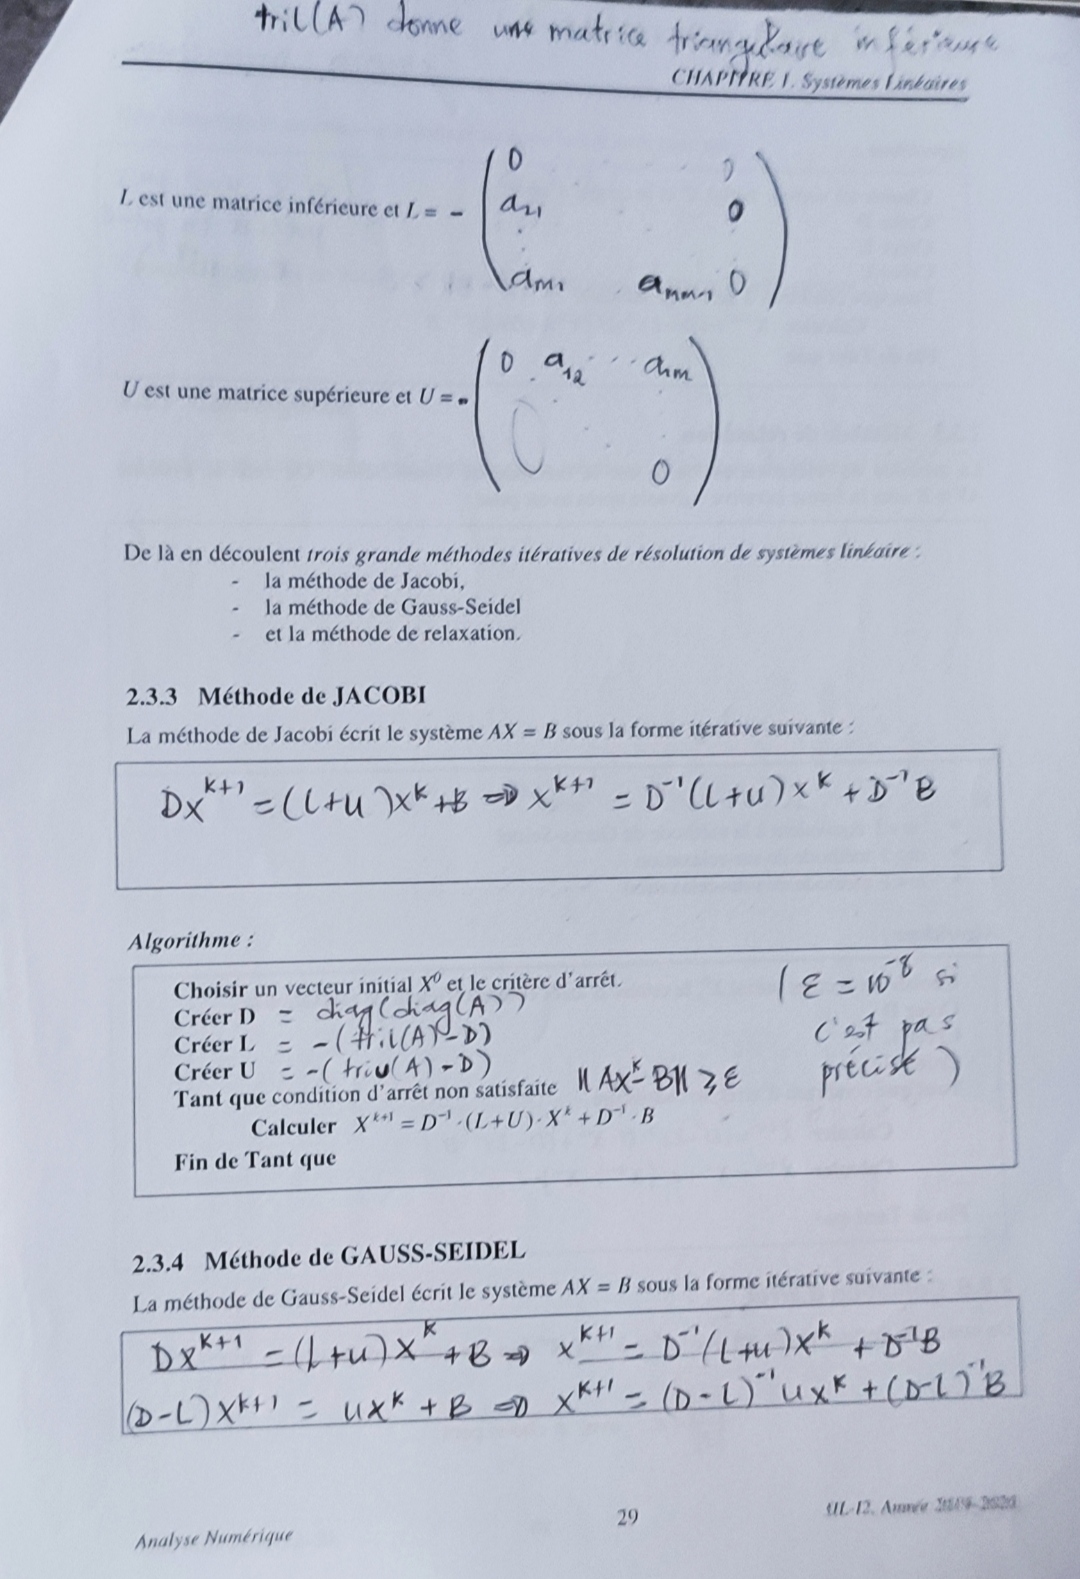 tril(A) donne une matrice triangulaire inférieure
CHAPITRE 1. Systèmes Linéaires
0 0
L est une matrice inférieure et L = - a21 0
am1 amm-1 0
0 a12 ... a1m
U est une matrice supérieure et U = -
0 0
De là en découlent trois grande méthodes itératives de résolution de systèmes linéaire :
- la méthode de Jacobi,
- la méthode de Gauss-Seidel
- et la méthode de relaxation.
2.3.3 Méthode de JACOBI
La méthode de Jacobi écrit le système AX = B sous la forme itérative suivante :
DX^{k+1} = (L+U)X^k + B => X^{k+1} = D^{-1}(L+U)X^k + D^{-1}B
Algorithme :
Choisir un vecteur initial X^0 et le critère d'arrêt. (ε = 10^{-8} si
Créer D = diag(diag(A)) c'est pas
Créer L = -(tril(A)-D) précisé)
Créer U = -(triu(A)-D)
Tant que condition d'arrêt non satisfaite ||AX^k - B|| ≥ ε
Calculer X^{k+1} = D^{-1}·(L+U)·X^k + D^{-1}·B
Fin de Tant que
2.3.4 Méthode de GAUSS-SEIDEL
La méthode de Gauss-Seidel écrit le système AX = B sous la forme itérative suivante :
DX^{k+1} = (L+U)X^k + B => X^{k+1} = D^{-1}(L+U)X^k + D^{-1}B
(D-L)X^{k+1} = UX^k + B => X^{k+1} = (D-L)^{-1}UX^k + (D-L)^{-1}B
29
Année 2019-2020
Analyse Numérique